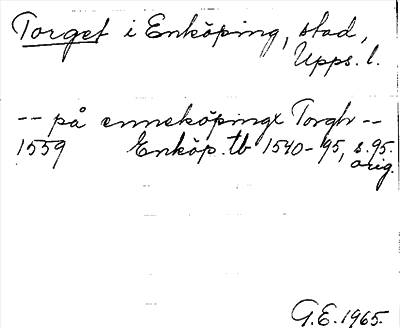 Torget i Enköping, stad,
Upps. l.
-- på enneköpingx Torgh --
1559 Enköp. tb 1540-95, s. 95.
orig.
G.E. 1965.